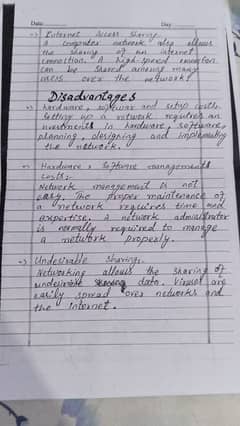 Date Day
=> Internet Access Sharing.
A computer network also allows
the sharing of an internet
connection. A high-speed connection
can be shared among many
users over the network!
Disadvantages
=> hardware, software and setup costs.
Setting up a network requires an
investments in hardware, software,
planning, designing and implementing
the network.
=> Hardware, Software managements
costs:-
Network management is not
easy. The proper maintenance of
a network requires time and
expertise. A network administrator
is normally required to manage
a network properly.
=> Undesirable Sharing.
Networking allows the sharing of
undesirable data. Viruses are
easily spread over networks and
the internet.